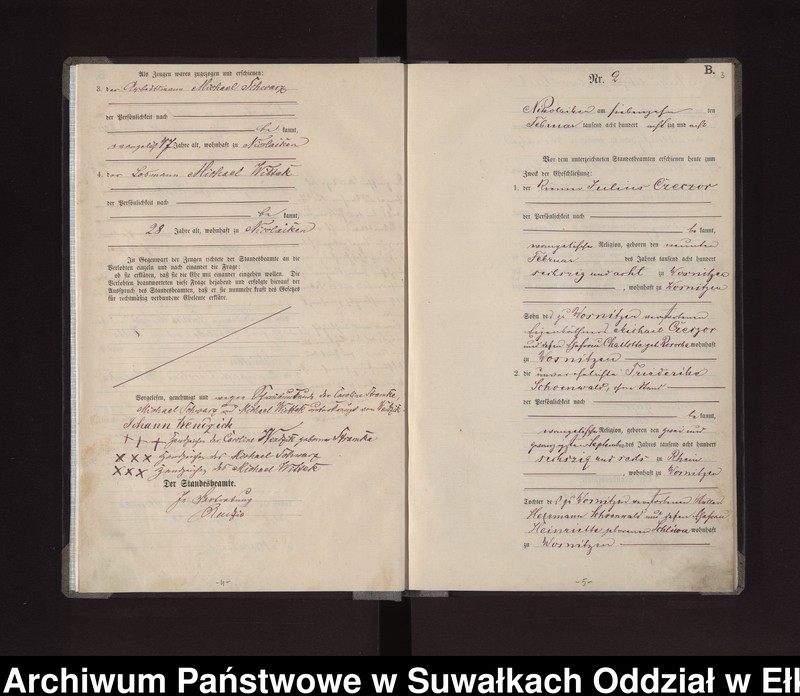 Als Zeugen waren zugezogen und erschienen:
3. der Arbeitsmann Michael Schwarz
der Persönlichkeit nach
be kannt,
evangelisch 47 Jahre alt, wohnhaft zu Nicolaiken
4. der Losmann Michael Wittek
der Persönlichkeit nach
be kannt,
28 Jahre alt, wohnhaft zu Nicolaiken
In Gegenwart der Zeugen richtete der Standesbeamte an die
Verlobten einzeln und nach einander die Frage:
ob sie erklären, daß sie die Ehe mit einander eingehen wollen. Die
Verlobten beantworteten diese Frage bejahend und erfolgte hierauf der
Ausspruch des Standesbeamten, daß er sie nunmehr kraft des Gesetzes
für rechtmäßig verbundene Eheleute erkläre.
Vorgelesen, genehmigt und wegen der Caroline
Michael Schwarz Michael Wittek von
Johann
+++ Handzeichen der Caroline geborene
××× Handzeichen des Michael Schwarz
××× Handzeichen des Michael Wittek
Der Standesbeamte.
In Vertretung
-4-
B.
3
Nr. 2
Nikolaiken am siebenzehn ten
Februar tausend acht hundert acht zig und acht
Vor dem unterzeichneten Standesbeamten erschienen heute zum
Zweck der Eheschließung:
1. der Julius Czeczor
der Persönlichkeit nach
be kannt,
evangelischer Religion, geboren den neunten
Februar des Jahres tausend acht hundert
sechszig und acht zu Wosnitzen
, wohnhaft zu Wosnitzen
Sohn des zu Wosnitzen verstorbenen
Eigenkäthners Michael Czeczor
und dessen Ehefrau Charlotte geb. wohnhaft
zu Wosnitzen
2. die unverehelichte Friederike
Schoenwald, ohne Stand
der Persönlichkeit nach
be kannt,
evangelischer Religion, geboren den zwei und
zwanzigsten September des Jahres tausend acht hundert
sechszig und sechs zu Rhein
, wohnhaft zu Wosnitzen
Tochter des zu Wosnitzen verstorbenen
Herrmann Schoenwald und dessen Ehefrau
Heinriette geborene Schliwa wohnhaft
zu Wosnitzen
-5-
Archiwum Państwowe w Suwałkach Oddział w Eł